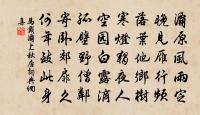 灞原風雨定
晚見雁行頻
落葉他鄉樹
寒燈獨夜人
空園白露滴
孤壁野僧鄰
寄卧郊扉久
何年致此身
馬戴灞上秋居詞典網
集